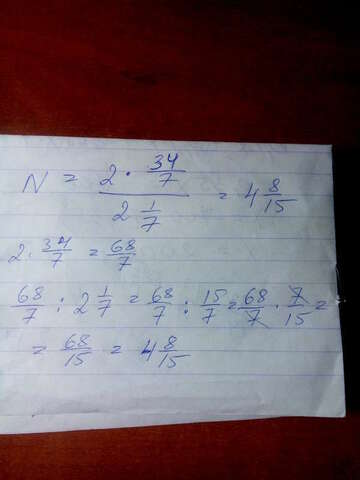 N = (2 · 34/7) / (2 1/7) = 4 8/15
2 · 34/7 = 68/7
68/7 : 2 1/7 = 68/7 : 15/7 = 68/7 · 7/15 =
= 68/15 = 4 8/15